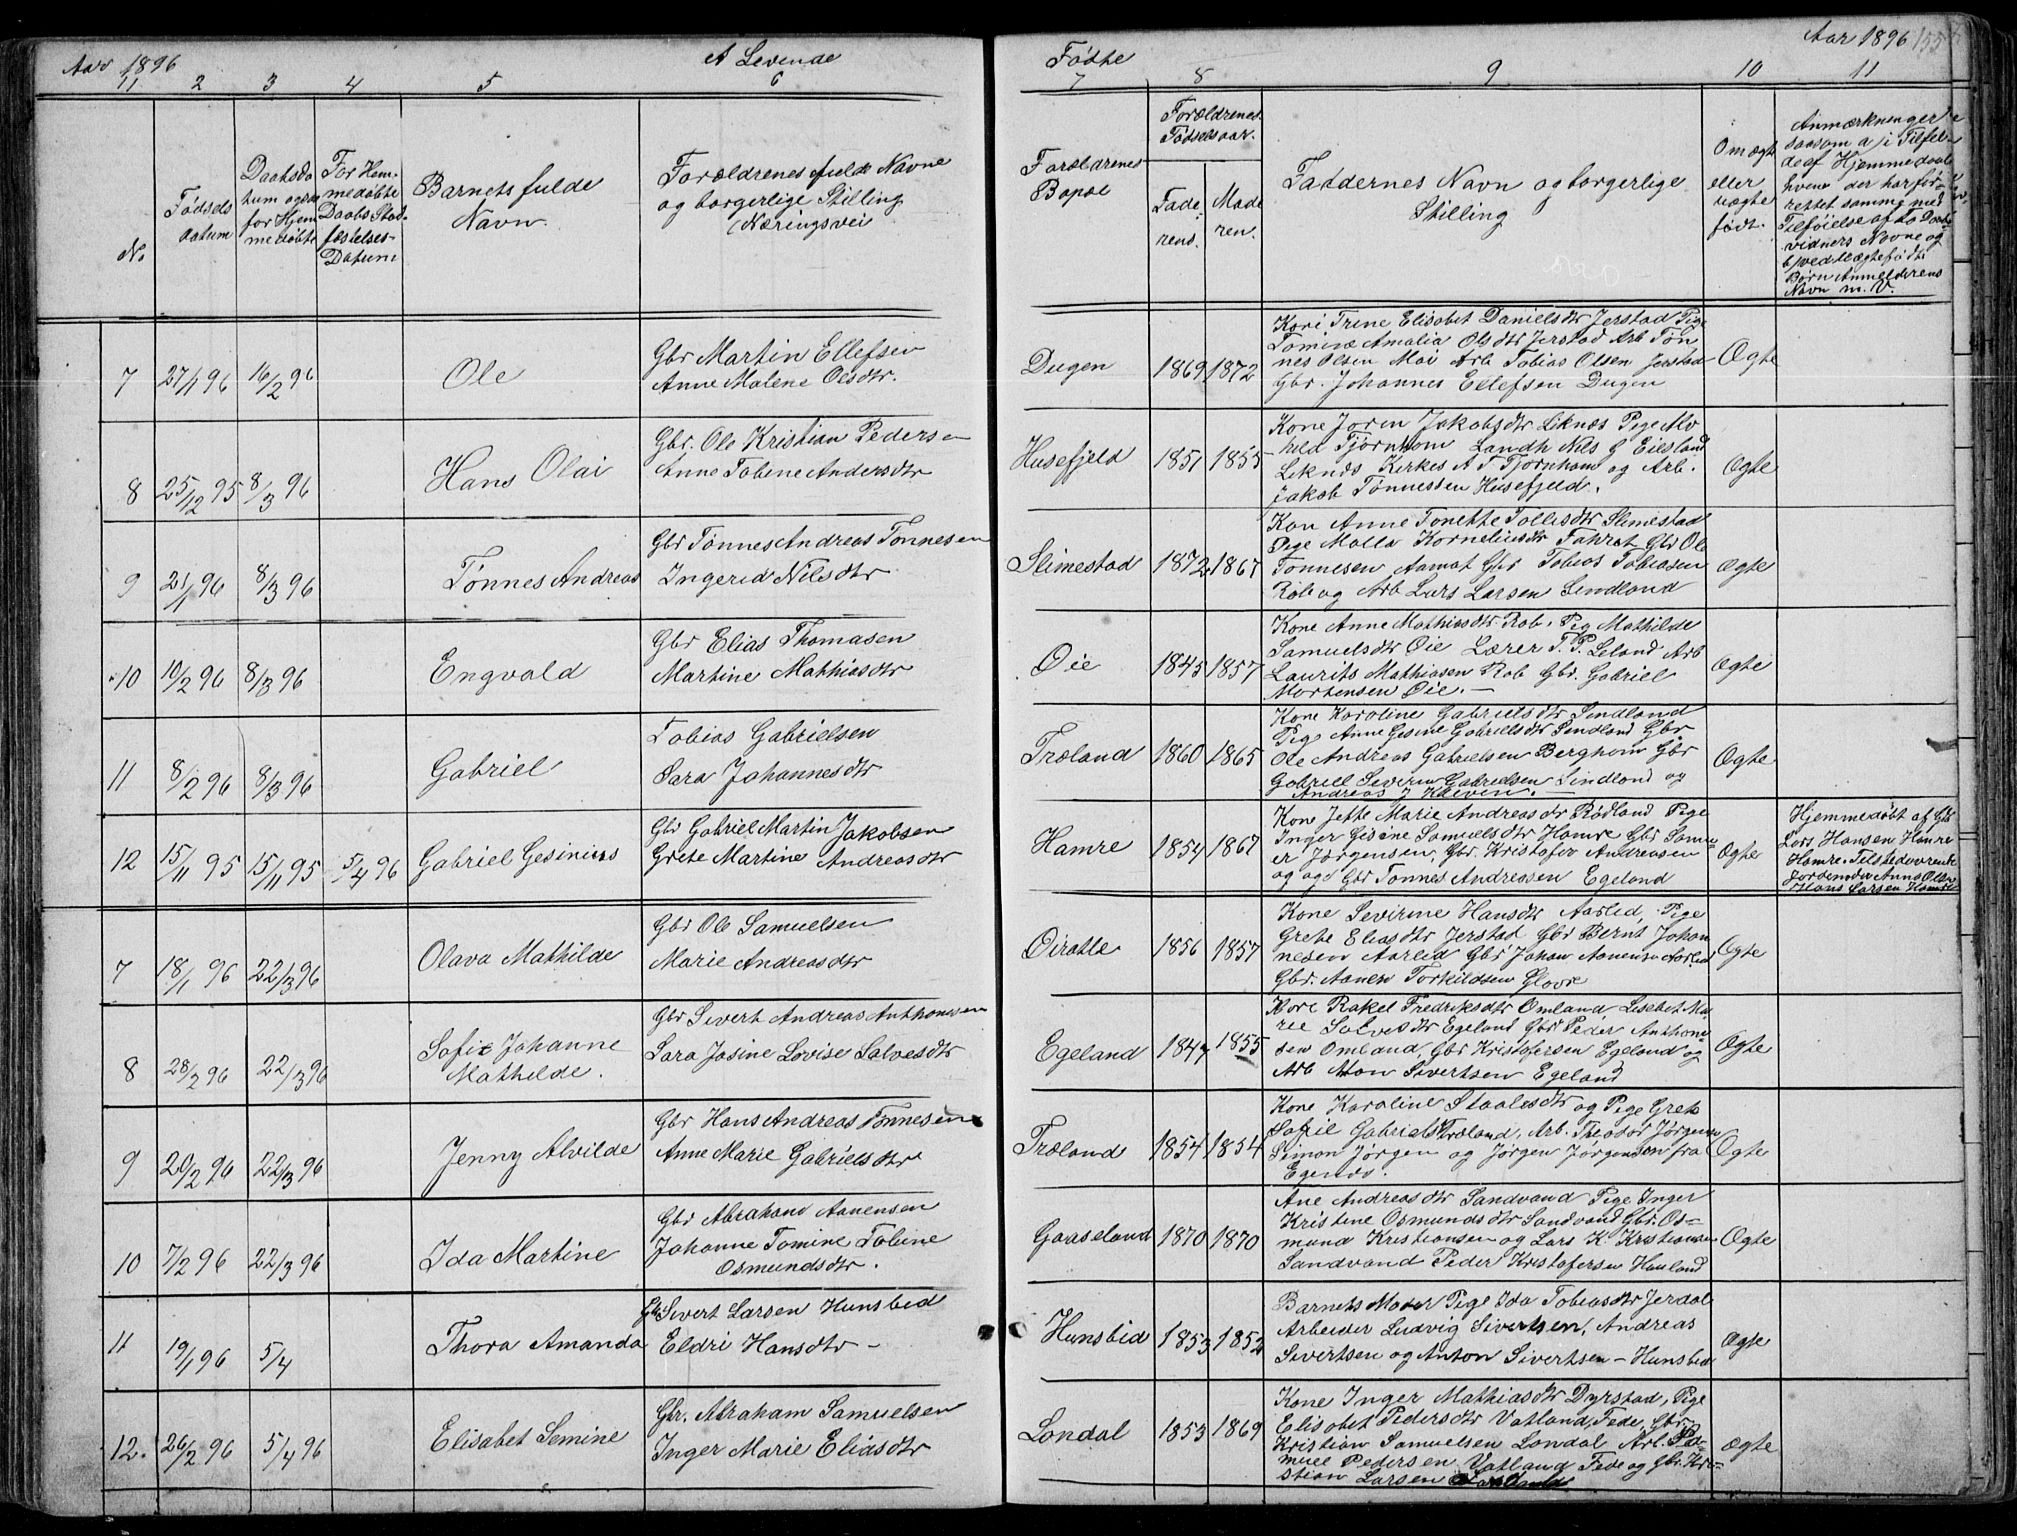 Aar 1896
A Levende
Fødte
Aar 1896
155
11 2 3 4 5 6 7 8 9 10 11
No.
Fødsels
datum
Daabsda
tum ogsaa
for Hjem
medøbte
For Hjem-
medøbte
Daabs Stad-
fæstelses-
Datum
Barnets fulde
Navn.
Forældrenes fulde Navne
og borgerlige Stilling
Næringsvei
Forældrenes
Bopæl
Forældrenes
Fødselsaar.
Fade-
rens.
Mode
ren.
Faddernes Navn og borgerlige
Stilling
Om ægte
eller
uægte
født.
Anmærkninger
saasom a) i Tilfæl-
de af Hjemmedaab
hvem der har for-
rettet samme med
Tilføielse af to Daabs
vidners Navne og
b) ved uægte fødte
Børn Anmelderens
Navn m. V.
7 27/1 96 16/2 96 Ole
Gbr Martin Ellefsen
Anne Malene Olsdtr.
Dugen 1869 1872
Kone Trine Elisabet Danielsdtr Jerstad Pige
Tomine Amalia Olsdtr Jerstad Arb Tøn
nes Olsen Moi Arb Tobias Olsen Jerstad
Gbr. Johannes Ellefsen Dugen
Ægte
8 25/12 95 8/3 96 Hans Olai
Gbr. Ole Kristian Pedersen
Anne Tobine Andersdtr
Husefjeld 1851 1855
Kone Joren Jakobsdtr Liknæs Pige Al
hild Tjørnhom Landh Nils G Eiesland
Liknæs Kirkes A T Tjørnhom og Arb.
Jakob Tønnessen Husefjeld.
Ægte
9 21/1 96 8/3 96 Tønnes Andreas
Gbr Tønnes Andreas Tønnesen
Ingerid Nilsdtr
Slimestad 1872 1867
Kon Anne Tonette Tollisdtr Slimestad
Pige Malla Korneliusdtr Gbr Ole
Tønnesen Aamot Gbr Tobias Tobiasen
Rob og Arb Lars Larsen Sindland
Ægte
10 10/2 96 8/3 96 Engvald
Gbr Elias Thomasen
Martine Mathiasdtr
Øie 1845 1857
Kone Anne Mathiasdtr Rob. Pig Mathilde
Samuelsdtr Øie Lærer T. P. Leland Arb
Laurits Mathiasen Rob Gbr. Gabriel
Mortensen Øie. —
Ægte
11 8/2 96 8/3 96 Gabriel
Tobias Gabrielsen
Sara Johannesdtr
Træland 1860 1865
Kone Karoline Gabrielsdtr Sindland
Pige Anne Gesine Gabrielsdtr Sindland Gbr
Ole Andreas Gabrielsen Berghom Gbr
Gabriel Severin Gabrielsen Sindland og
Andreas J Kalven. —
Ægte
12 15/11 95 15/11 95 5/4 96 Gabriel Gesinius
Gbr Gabriel Martin Jakobsen
Grete Martine Andreasdtr
Hamre 1854 1867
Kone Jette Marie Andreasdtr Rødland Pige
Inger Gisine Samuelsdtr Hamre Gbr Samu-
el Jørgensen, Gbr. Kristofer Andreasen
og Gbr Tønnes Andreasen Egeland
Ægte
Hjemmedøbt af Gbr
Lars Hansen Hamre
Hamre. Tilstedeværende
Jordemoder Anna Olsen
Hans Larsen Hamre
7 18/1 96 22/3 96 Olava Mathilde
Gbr Ole Samuelsen
Marie Andreasdtr
Øiratle 1856 1857
Kone Sevirine Hansdtr Aarlid, Pige
Grete Eliasdtr Jerstad Gbr Bernt Johan
nesen Aarlid Gbr Johan Aanensen Aarlid
Gbr. Aanen Torkildsen Glovre
Ægte
8 28/2 96 22/3 96 Sofie Johanne
Mathilde.
Gbr Sivert Andreas Anthonisen
Sara Josine Lovise Salvesdtr
Egeland 1847 1855
Kone Rakel Fredriksdtr Omland, Lisabet Ma
rie Salvesdtr Egeland Gbr Peder Anthoni-
sen Omland, Gbr Kristofersen Egeland og
Arb Aton Sivertsen Egeland
Ægte
9 20/2 96 22/3 96 Jenny Alvilde
Gbr Hans Andreas Tønnesen
Anne Marie Gabrielsdtr
Træland 1854 1854
Kone Karoline Staalesdtr og Pige Grete
Sofie Gabriels Træland, Arb. Theodor Jørgensen
Simon Jørgen og Jørgen Jørgensen fra
Egends.
Ægte
10 7/2 96 22/3 96 Ida Martine
Gbr Abraham Aanensen
Johanne Tomine Tobine
Osmundsdtr.
Gaaseland 1870 1870
Ane Andreasdtr Sandvand Pige Inger
Kristine Osmundsdtr Sandvand Gbr. Os-
mund Kristiansen og Lars K. Kristiansen
Sandvand Peder Kristofersen Hauland
Ægte
11 19/1 96 5/4 Thora Amanda
Gbr Sivert Larsen Hunsbed
Eldri Hansdtr —
Hunsbed 1853 1852
Barnets Moder Pige Ida Tobiasdtr Jerdal
Arbeider Ludvig Sivertsen, Andreas
Sivertsen og Anton Sivertsen — Hunsbed
Ægte
12. 26/2 96 5/4 96 Elisabet Semine
Gbr. Abraham Samuelsen
Inger Marie Eliasdtr
Londal 1853 1869
Kone Inger Mathiasdtr Dyrstad, Pige
Elisabet Pedersdtr Vatland, Fede, Gbr.
Kristian Samuelsen Londal Arb. Sa-
muel Pedersen Vatland Fede og Gbr. Kri-
stian Larsen
Ægte